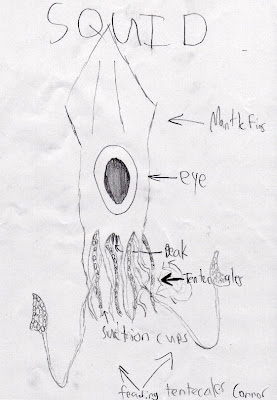 SQUID
Mantle Fins
eye
Beak
Tentengles
Suction cups
feading tentecales Connor